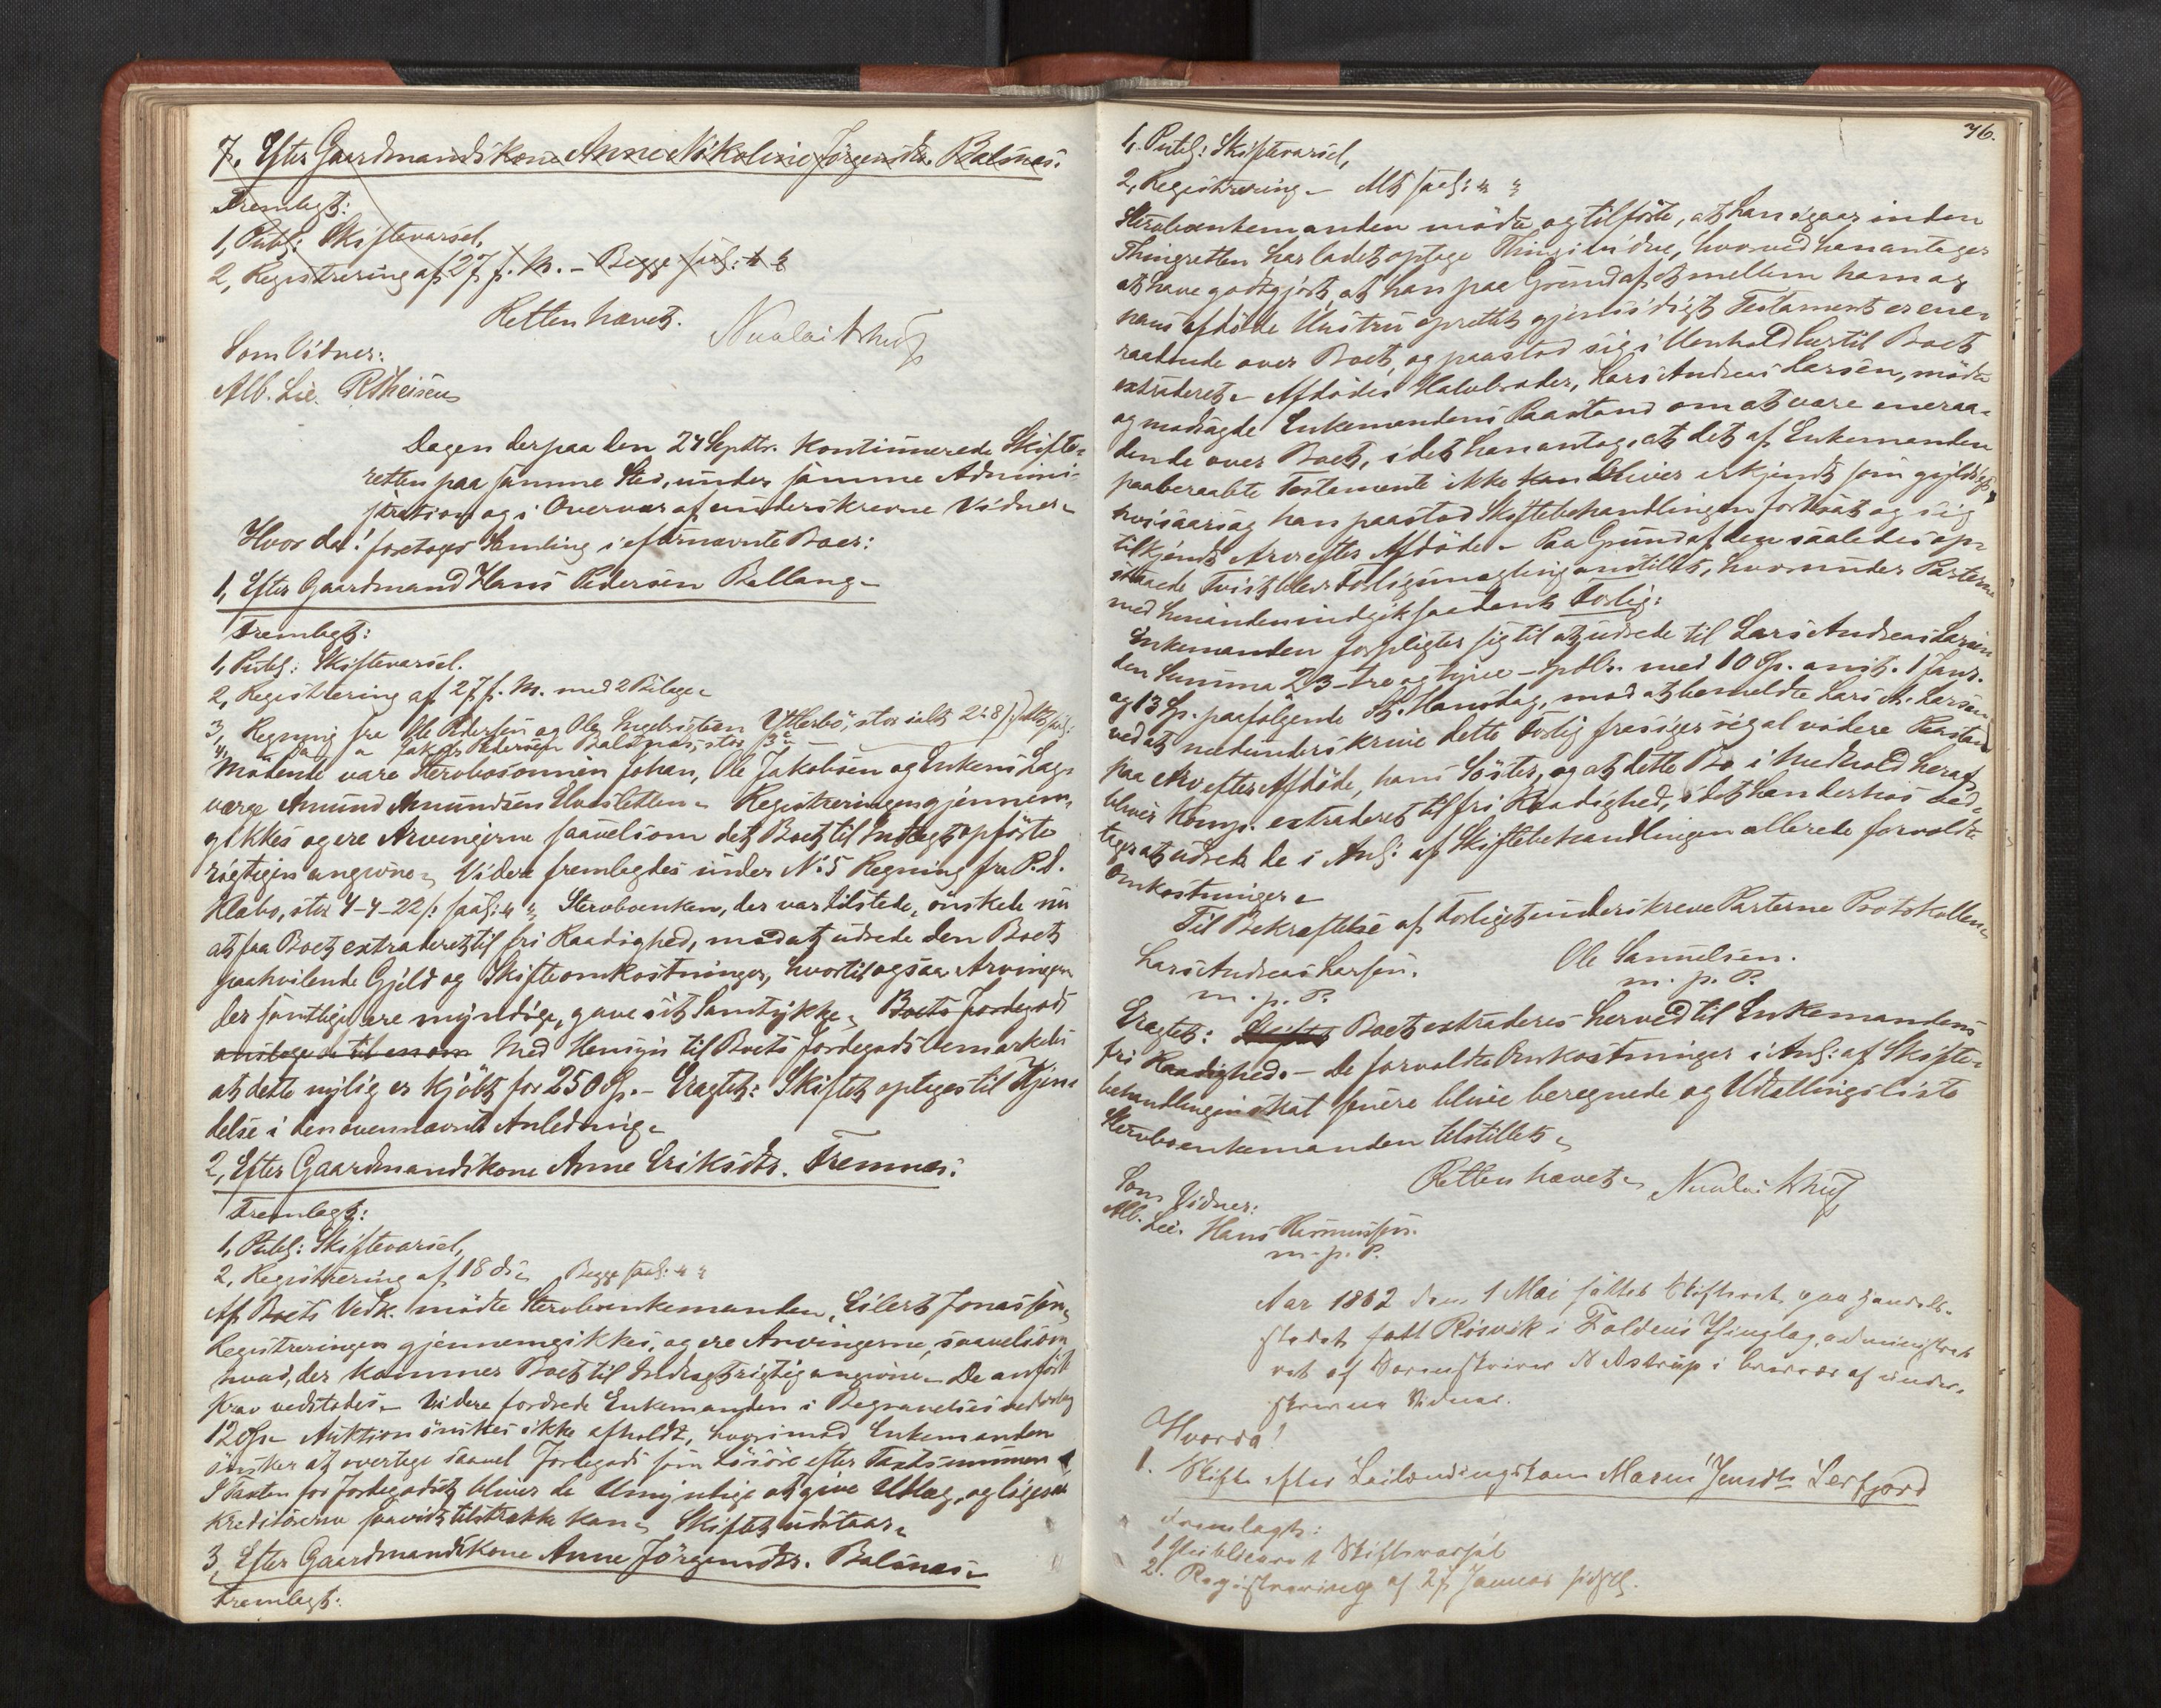 7. Efter Gaardmandskone Anne Nikoline Jörgensdtr. Balsnes:
Fremlagt:
1, Publ: Skiftevarsel,
2, Registrering af 27 f. M. - Begge saal:
Retten hævet.
Nicolai Astrup
Som Vidner:
Alb. Lie. RTheisen
Dagen derpaa den 24 Septbr. kontinuerede Skifte-
retten paa samme Sted, under samme Admini-
stration og i Overvær af underskrevne Vidner-
Hvorda! foretoges Samling i efternævnte Boer:
1, Efter Gaardmand Hans Pedersen Ballang-
Fremlagt:
1, Publ: Skiftevarsel.
2, Registrering af 27 f. M. med 2 Bilage-
3, Regning fra Ole Pedersen og Ole Ingebrigtsen Ytterbö, stor ialt
4, Do fra Jakob Pedersen Balsnæs, stor
Mödende vare Stervbosönnen Johan, Ole Jakobsen og Enkens Lag-
værge Amund Amundsen Elvesletten- Registreringen gjennem-
gikkes og ere Arvingerne saavelsom det Boet til Indtægt opförte
rigtigen angivne- Videre fremlagdes under No 5 Regning fra P. d.
Klæbo, stor 4-4-22 /: saal: Stervboenken, der var tilstede, önskede nu
at faa Boet extraderet til fri Raadighed, mod at udrede den Boet
paahvilende Gjeld og Skifteomkostninger, hvortil ogsaa Arvingerne
der samtlige ere myndige, gave sit Samtykke- Boets Jordegods
ansloges til en om Med Hensyn til Boets Jordegods bemærkedes
at dette nylig er kjöbt for 250 Sp. - Eragtet: Skiftet optages til Kjen-
delse i den ovennævnte Anledning-
2, Efter Gaardmandskone Anne Eriksdtr. Fremnes:
Fremlagt:
1, Publ: Skiftevarsel,
2, Registrering af 18 ds- Begge saal:
Af Boets Vedk. mödte Stervboenkemanden, Eilert Jonassen,
Registreringen gjennemgikkes, og ere Arvingerne, saavelsom
hvad, der kommer Boet til Indtægt rigtig angivne- De anförte
Krav vedstodes- Videre fordrede Enkemanden i Begravelsesvederlag
12 Sp- Auktion önskes ikke afholdt, hvorimod Enkemanden
önsker at overtage saavel Jordegods som Lösöre efter Taxtsummen
I Taxten for Jordegodset bliver de Umyndige at give Udlæg, og ligesaa
Kreditorerne saavidt tilstrække kan- Skiftet udstaar-
3, Efter Gaardmandskone Anne Jörgensdtr. Balsnæs-
Fremlagt:
76.
1, Publ: Skiftevarsel,
2, Registrering- Alt saal:
Stervboenkemanden mödte og tilförte, at han igaar inden
Thingretten har ladet optage Thingsvidne, hvorved han antages
at have godtgjort, at han paa Grund af et mellem ham og
hans afdöde Hustru oprettet gjensidigt Testament er ene-
raadende over Boet, og paastod sig i Henhold hertil Boet
extraderet- Afdödes Halvbroder, Lars Andreas Larsen, mödte
og modsagde Enkemandens Paastand om at være eneraa-
dende over Boet, idet han antog, at det af Enkemanden
paaberaabte Testamente ikke kan bliver erkjendt som gyldigt,
hvisaarsag han paastod Skiftebehandlingen fortsat og sig
tilkjendt Arv efter Afdöde- Paa Grund af den saaledes op-
staaede Tvist blev Forligsmægling anstillet, hvorunder Parterne
med hinanden indgik saadant Forlig:
Enkemanden forpligter sig til at udrede til Lars Andreas Larsen
den Summa 23-tre og tyve- Spdlr. med 10 Sp. anst. 1 Janr.
og 13 Sp. paafölgende St. Hansdag, mod at bemeldte Lars A. Larsen
ved at medunderskrive dette Forlig frasiger sig al videre Paastand
paa Arv efter Afdöde, hans Söster, og at dette Bo i Medhold heraf
bliver Komp. extraderet til fri Raadighed, idet han derhos ved-
tager at udrede de i Anl: af Skiftebehandlingen allerede forvoldte
Omkostninger-
Til Bekræftelse af Forliget underskreve Parterne Protokollen-
Lars Andreas Larsen. Ole Samuelsen.
m. p. P. m. p. P.
Eragtet: Skiftet Boet extraderes herved til Enkemandens
fri Raadighed. - De forvoldte Omkostninger i Anl: af Skifte-
behandlingen skal senere blive beregnede og Udtællingsliste
Stervboenkemanden tilstillet-
Retten hævet- Nicolai Astrup
Som Vidner:
Alb. Lie. Hans Rasmussen.
m. p. P.
Aar 1862 den 1 Mai sattes Skifteret paa Handels-
stedet Rösvik i Foldens Thinglag, administre-
ret af Sorenskriver N Astrup i Overvær af under-
skrevne Vidner.
Hvorda!
1. Skifte efter Leilændingskone Maren Jensdtr Lerfjord
Fremlagt:
1 Publiceret Skiftevarsel
2. Registrering af 27 Januar